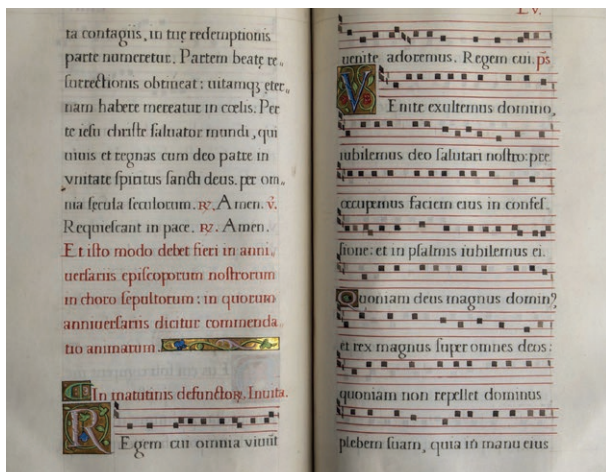 ta contagiis, in tuę redemptionis
parte numeretur. Partem beatę re„
surrectionis obtineat: uitamqʒ eter„
nam habere mereatur in cœlis. Per
te iesu christe saluator mundi, qui
uiuis et regnas cum deo patre in
vnitate spiritus sancti deus. per om„
nia secula seculorum. ℟. Amen. ℣.
Requiescant in pace. ℟. Amen.
Et isto modo debet fieri in anni„
uersariis episcoporum nostrorum
in choro sepultorum: in quorum
anniuersariis dicitur commenda„
tio animarum.
In matutinis defunctoꝝ. Inuita.
Regem cui omnia viuūt
LV.
uenite adoremus. Regem cui. p̄s
VEnite exultemus domino,
iubilemus deo salutari nostro: pre
occupemus faciem eius in confes„
sione: et in psalmis iubilemus ei.
Quoniam deus magnus domin⁹
et rex magnus super omnes deos:
quoniam non repellet dominus
plebem suam, quia in manu eius